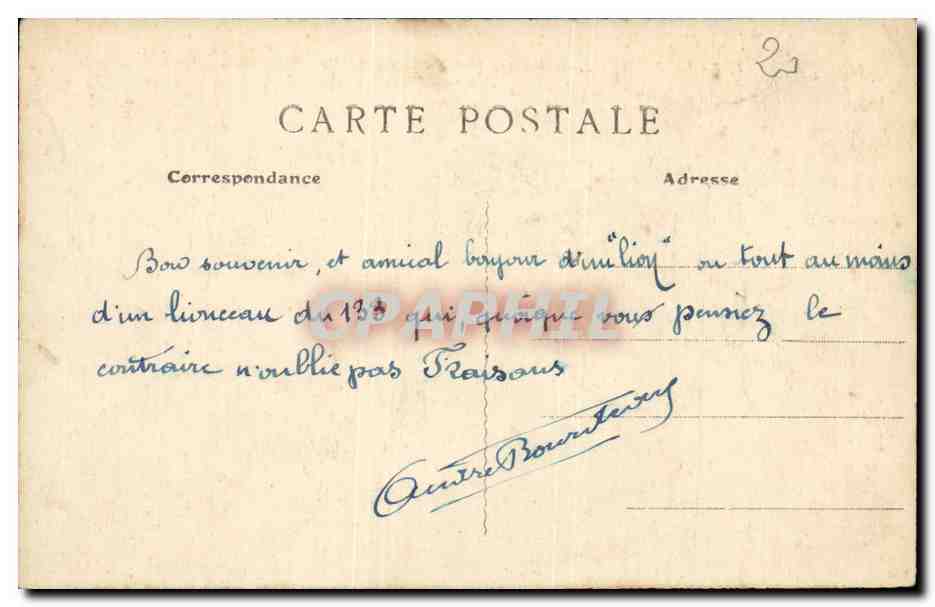 2
CARTE POSTALE
Correspondance
Adresse
Bon souvenir, et amical bonjour d'un "lion" ou tout au moins
d'un lionceau du 133 qui, quoique vous pensiez le
contraire n'oublie pas Fraisans
André
CPAPHIL